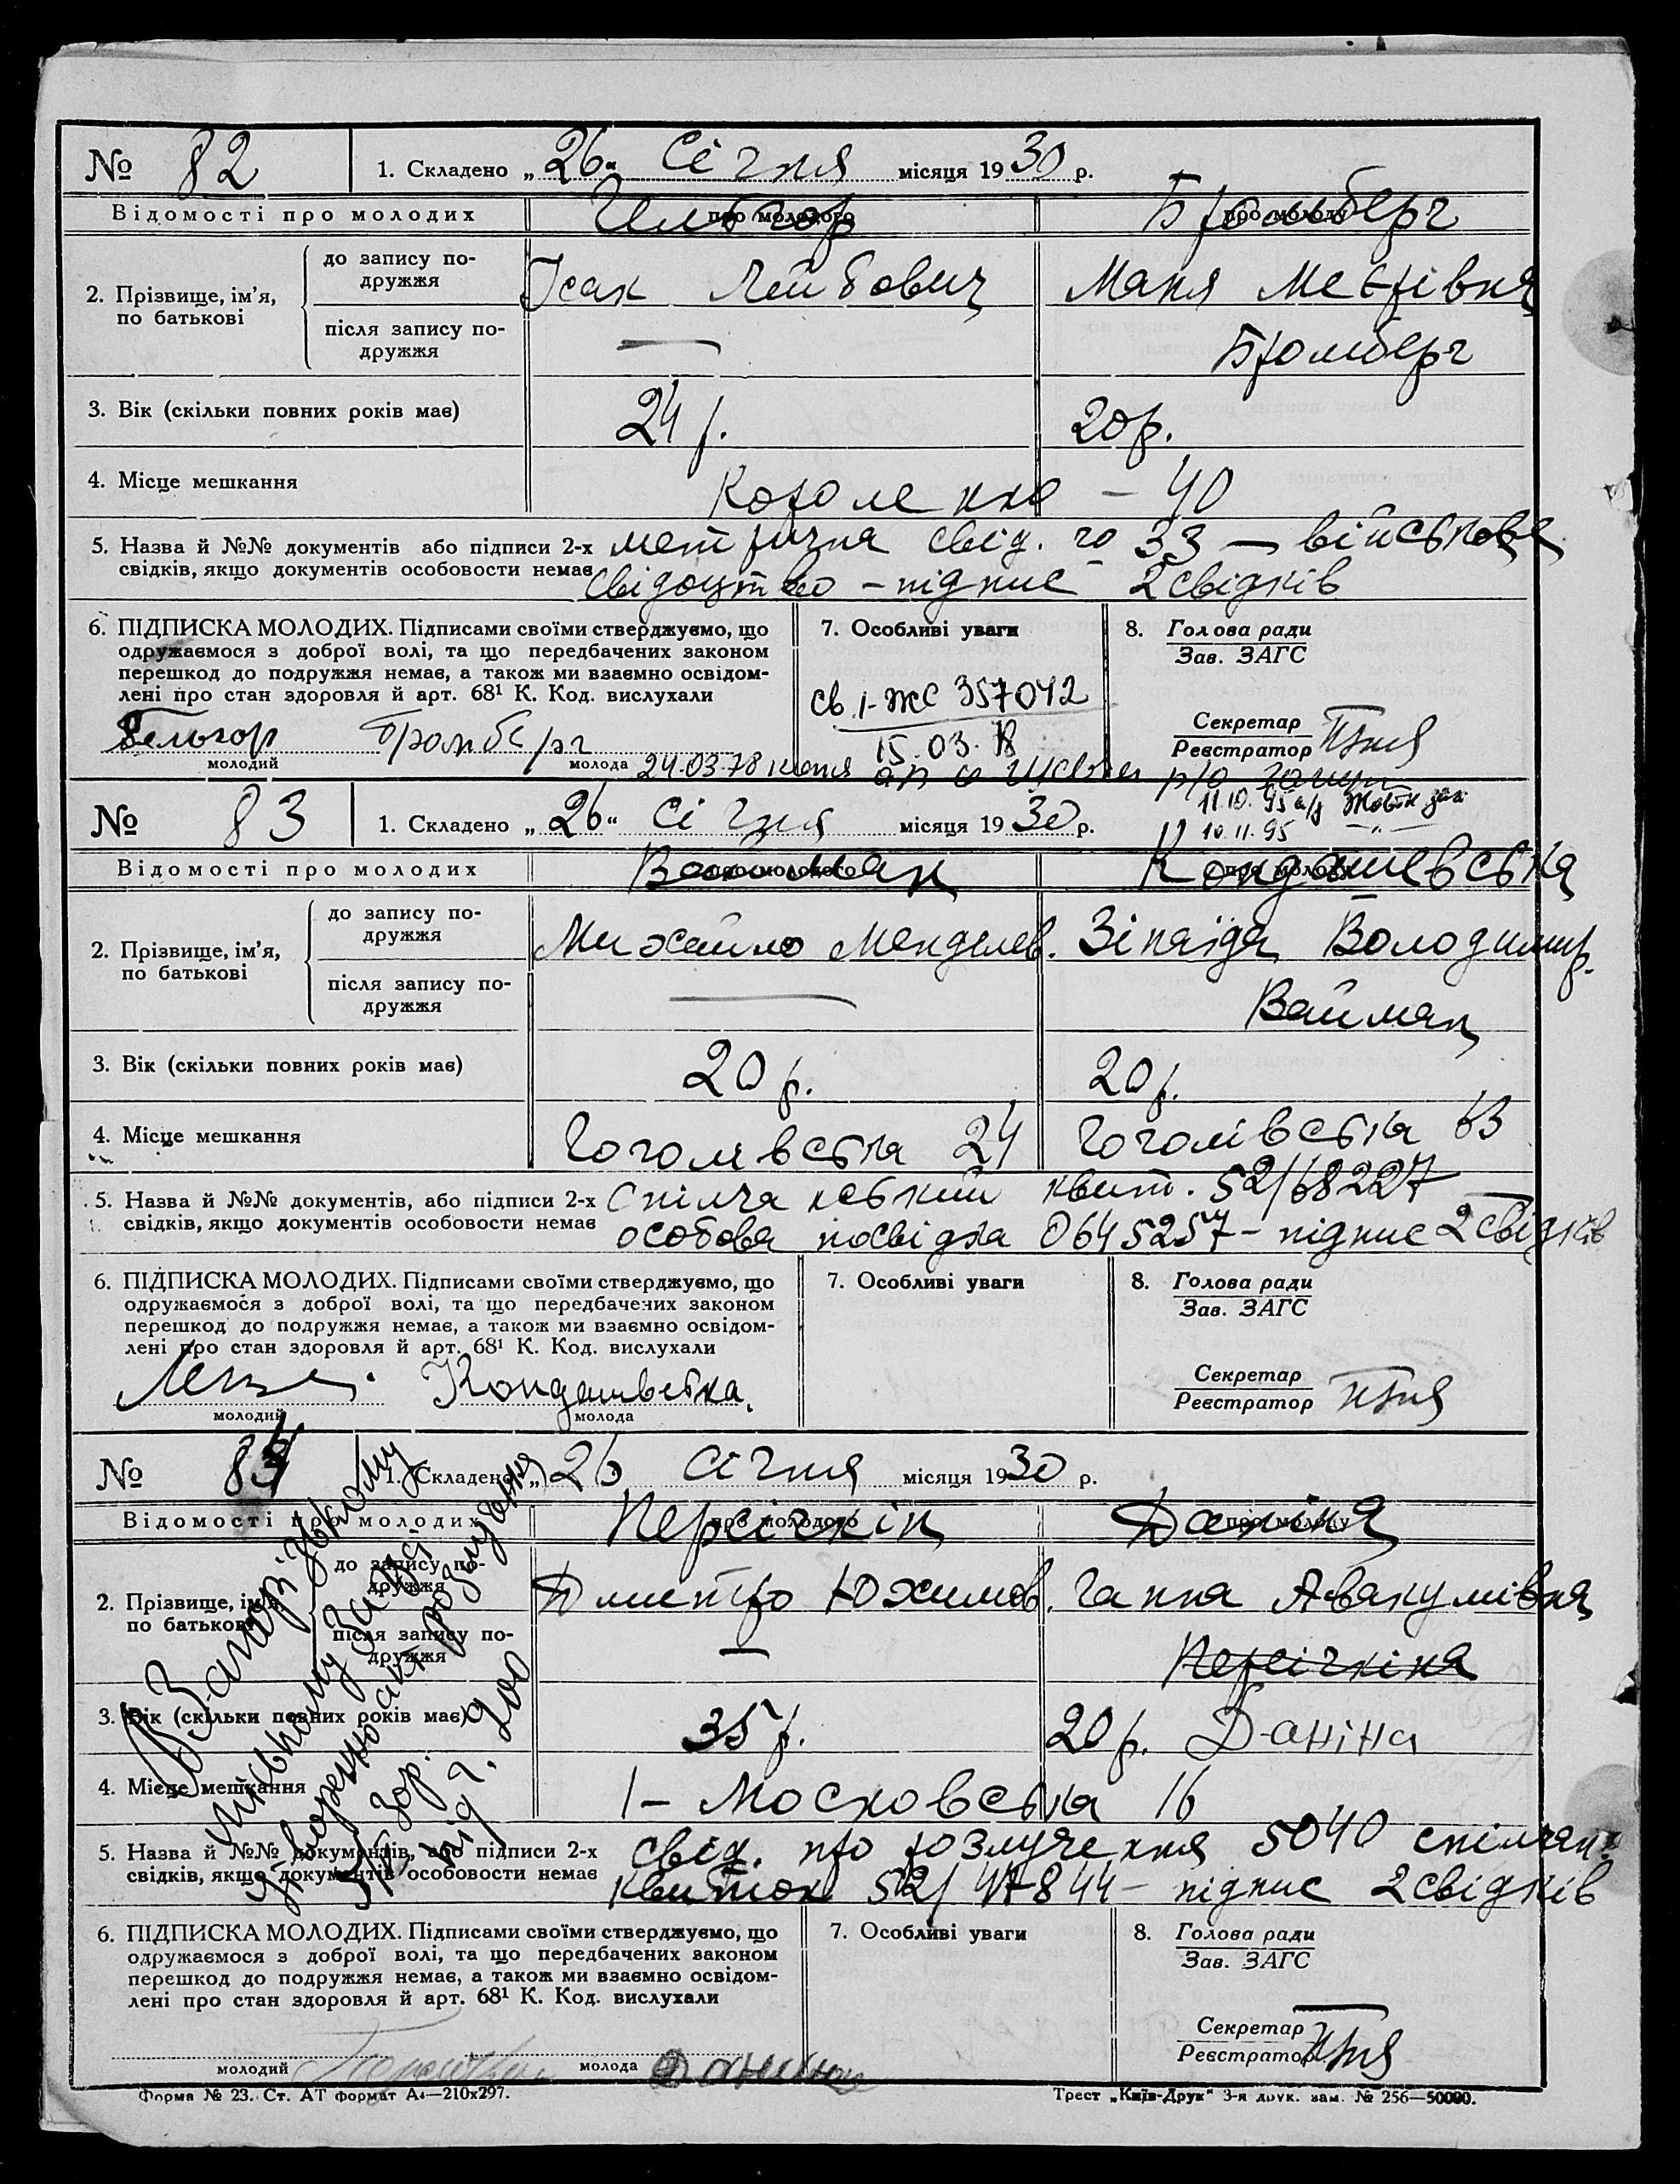 № 82 1. Складено „ 26 “ Січня місяця 1930 р.
Відомості про молодих про молодого про молоду Бромберг
2. Прізвище, ім’я, по батькові
до запису по-дружжя Ісак Лейбович Маня Меєрівна
після запису по-дружжя — Бромберг
3. Вік (скільки повних років має) 24 р. 20 р.
4. Місце мешкання Короленка – 40
5. Назва й №№ документів або підписи 2-х метрична свід. го 33 — військове
свідків, якщо документів особовости немає свідоцтво – підпис 2 свідків
6. ПІДПИСКА МОЛОДИХ. Підписами своїми стверджуємо, що
одружаємося з доброї волі, та що передбачених законом
перешкод до подружжя немає, а також ми взаємно освідом-
лені про стан здоровля й арт. 68¹ К. Код. вислухали
Бромберг
молодий молода
7. Особливі уваги
св. І-ЖС 357042
15.03.78
24.03.78
8. Голова ради
Зав. ЗАГС
Секретар
Реєстратор
11.10.95
10.11.95
№ 83 1. Складено „ 26 “ Січня місяця 1930 р.
Відомості про молодих Вайман про молодого Кондашевська про молоду
2. Прізвище, ім’я, по батькові
до запису по-дружжя Михайло Менделев. Зінаїда Володимир.
після запису по-дружжя — Вайман
3. Вік (скільки повних років має) 20 р. 20 р.
4. Місце мешкання Гоголевська 24 Гоголівська 63
5. Назва й №№ документів, або підписи 2-х Спілчанський квит. 52/68227
свідків, якщо документів особовости немає особова посвідка 0645257 – підпис 2 свідків
6. ПІДПИСКА МОЛОДИХ. Підписами своїми стверджуємо, що
одружаємося з доброї волі, та що передбачених законом
перешкод до подружжя немає, а також ми взаємно освідом-
лені про стан здоровля й арт. 68¹ К. Код. вислухали
Кондашевська
молодий молода
7. Особливі уваги
8. Голова ради
Зав. ЗАГС
Секретар
Реєстратор
№ 84 1. Складено „ 26 Січня місяця 1930 р.
Відомості про молодих Пересічкін про молодого Даніна про молоду
2. Прізвище, ім’я, по батькові
до запису по-дружжя Дмитро Юхимов. Ганна Авакумівна
після запису по-дружжя — Пересічкіна
3. Вік (скільки повних років має) 35 р. 20 р. Даніна
4. Місце мешкання 1 – Московська 16
5. Назва й №№ документів, або підписи 2-х свід. про розлучення 5040 спілчан.
свідків, якщо документів особовости немає квиток 52/47844 – підпис 2 свідків
6. ПІДПИСКА МОЛОДИХ. Підписами своїми стверджуємо, що
одружаємося з доброї волі, та що передбачених законом
перешкод до подружжя немає, а також ми взаємно освідом-
лені про стан здоровля й арт. 68¹ К. Код. вислухали
молодий молода
7. Особливі уваги
8. Голова ради
Зав. ЗАГС
Секретар
Реєстратор
Форма № 23. Ст. АТ формат А₄—210х297. Трест „Київ-Друк“ 3-я друк. зам. № 256—50000.
В Запорізькому
міському Загсі
створено акт розлучення